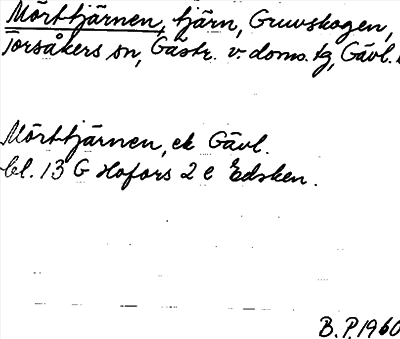 Mörttjärnen, tjärn, Gruvskogen,
Torsåkers sn, Gästr. v. doms. tg, Gävl.
Mörttjärnen, ek Gävl.
bl. 13 G Hofors 2 e Edsken.
B.P. 1960